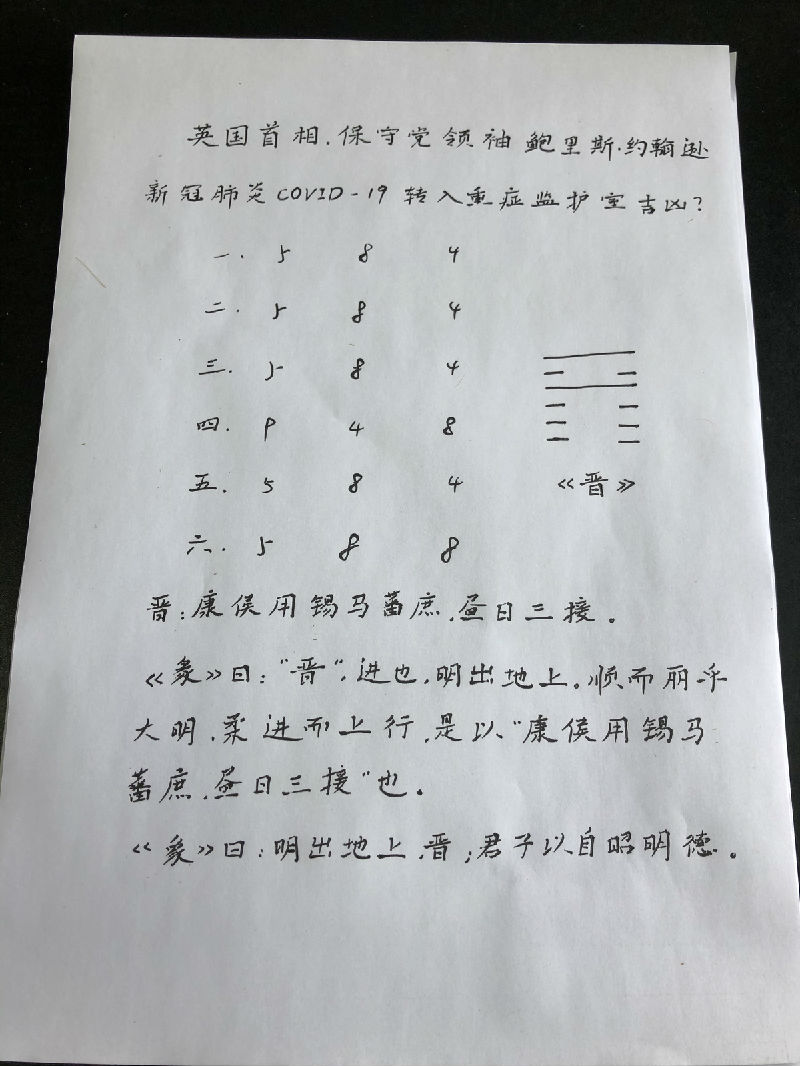 英国首相、保守党领袖鲍里斯·约翰逊
新冠肺炎COVID-19转入重症监护室吉凶?
一. 5 8 4
二. 5 8 4
三. 5 8 4
四. 9 4 8
五. 5 8 4
《晋》
六. 5 8 8
晋:康侯用锡马蕃庶,昼日三接。
《彖》曰:"晋",进也,明出地上。顺而丽乎
大明,柔进而上行,是以"康侯用锡马
蕃庶,昼日三接"也。
《象》曰:明出地上,晋;君子以自昭明德。